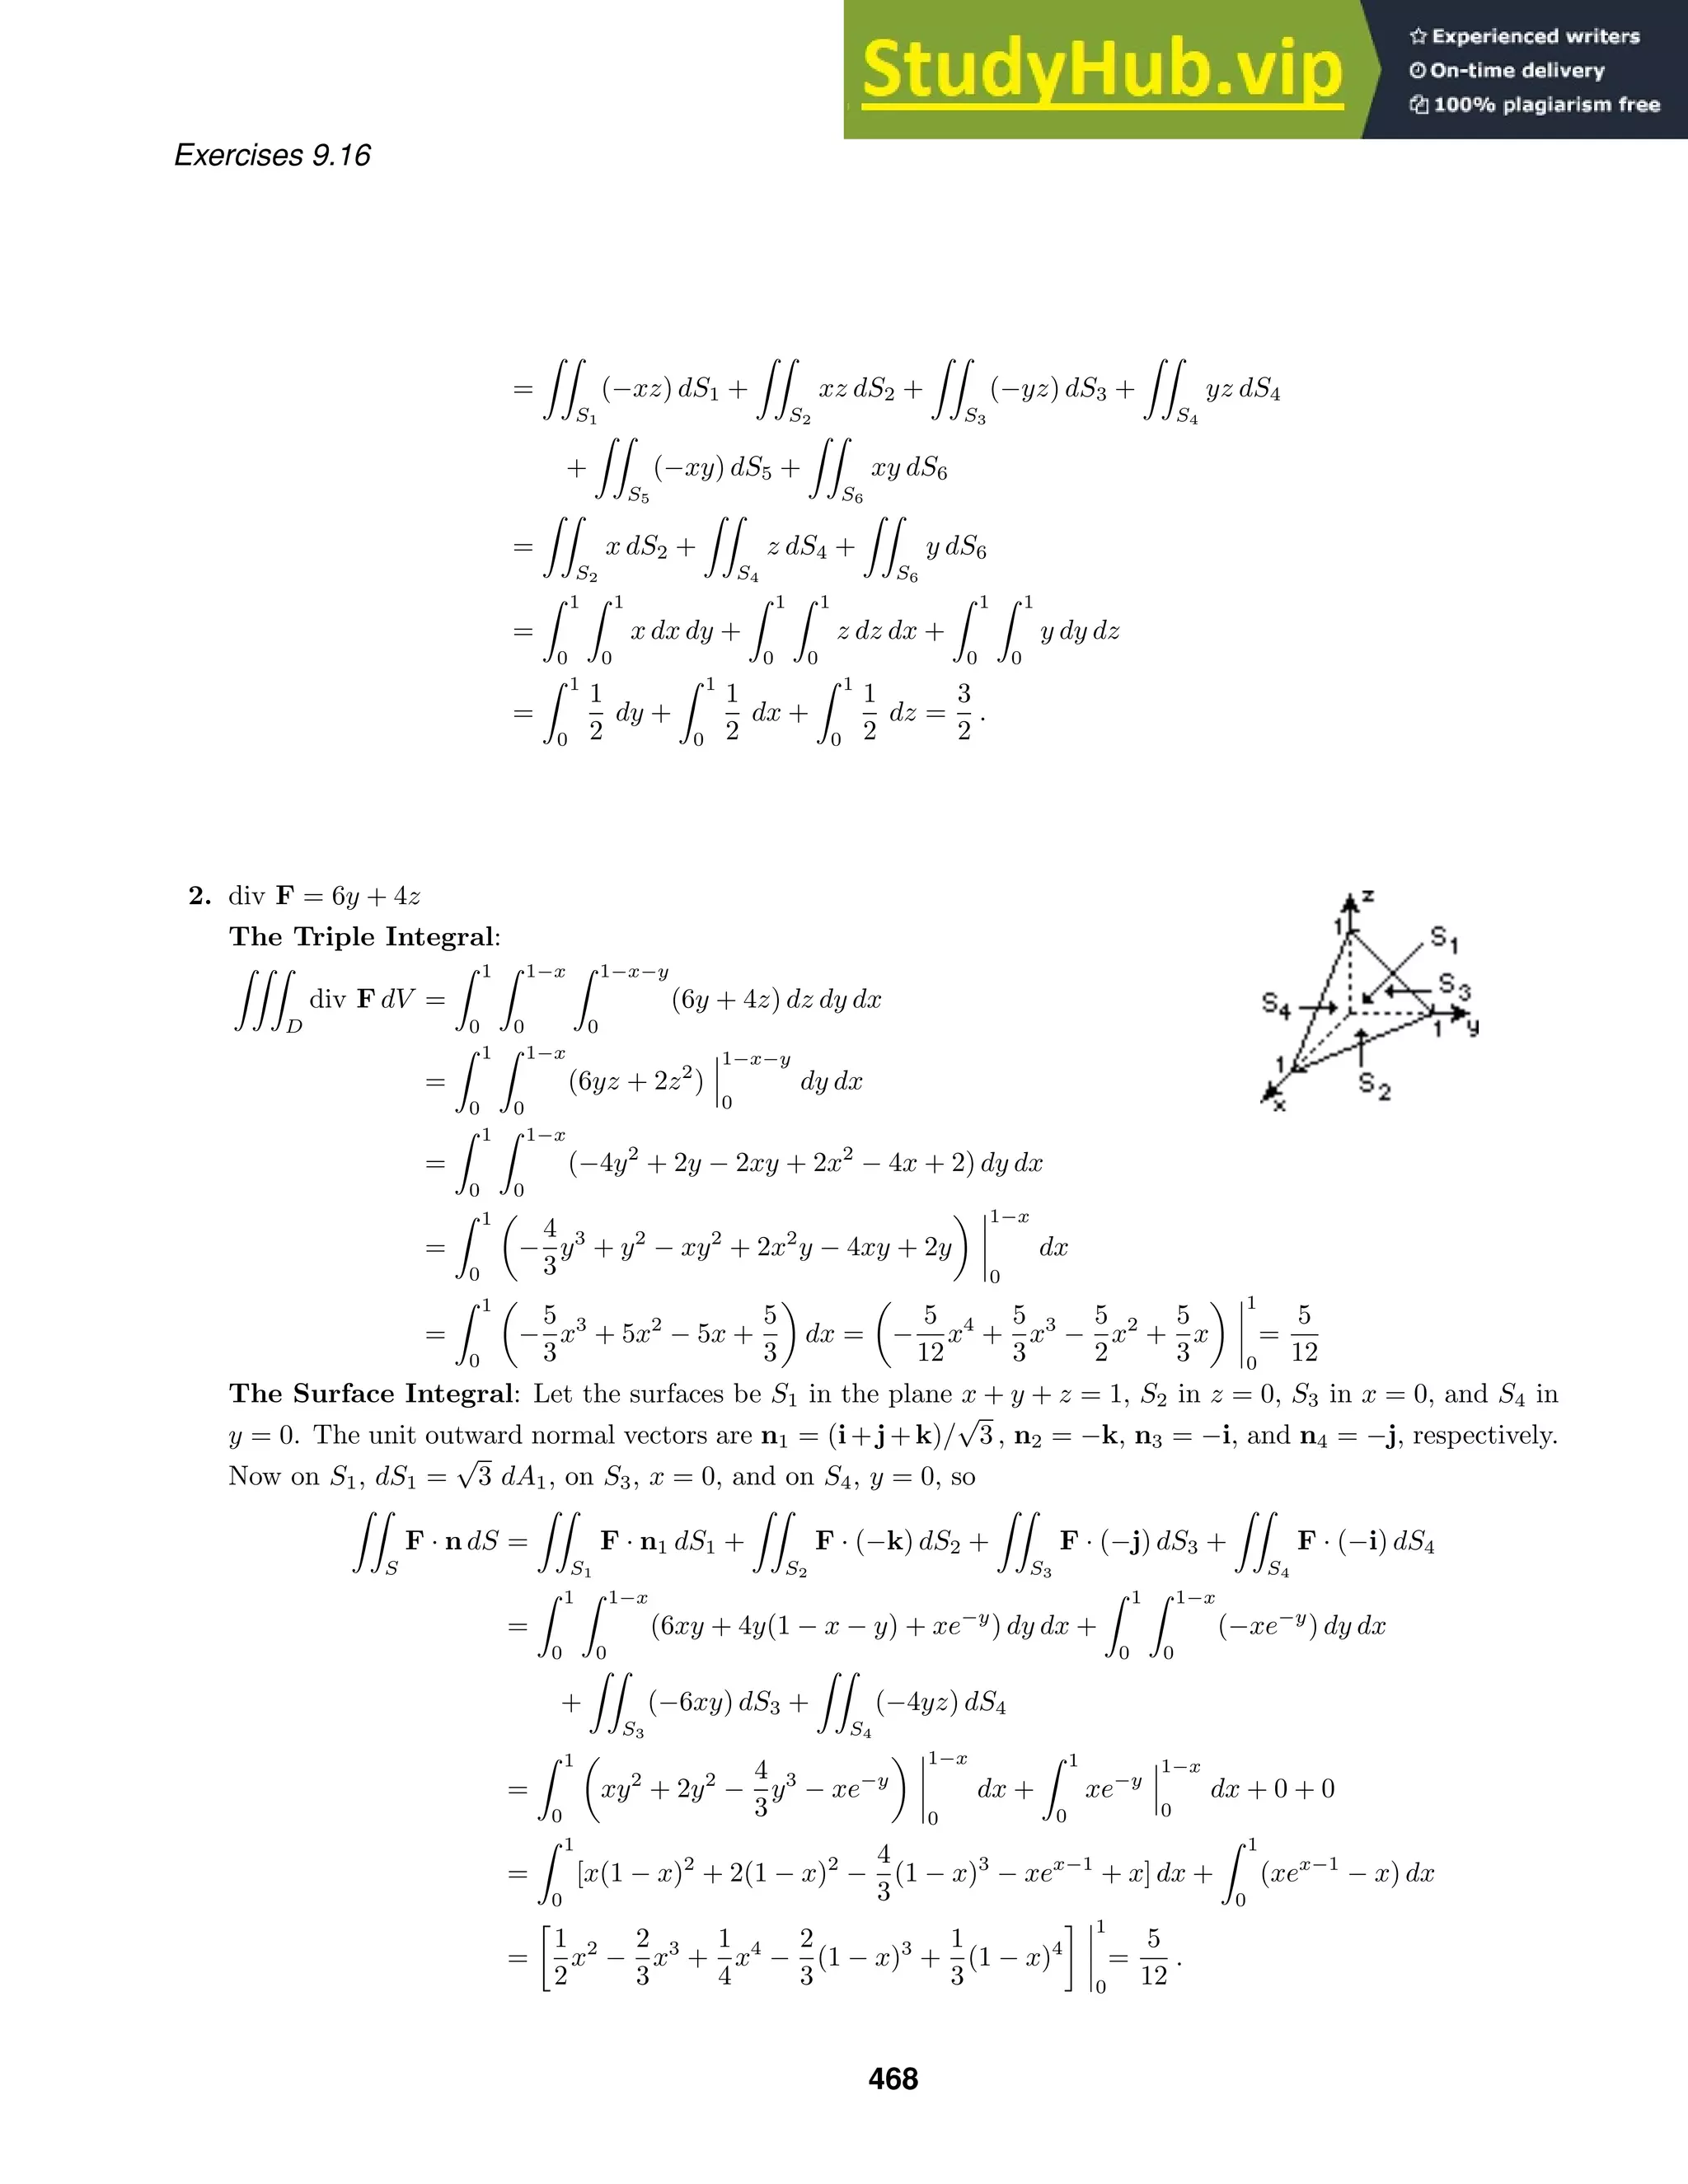 StudyHub.vip
☆ Experienced writers
On-time delivery
100% plagiarism free
Exercises 9.16
= ∬_{S₁} (−xz) dS₁ + ∬_{S₂} xz dS₂ + ∬_{S₃} (−yz) dS₃ + ∬_{S₄} yz dS₄
+ ∬_{S₅} (−xy) dS₅ + ∬_{S₆} xy dS₆
= ∬_{S₂} x dS₂ + ∬_{S₄} z dS₄ + ∬_{S₆} y dS₆
= ∫₀¹ ∫₀¹ x dx dy + ∫₀¹ ∫₀¹ z dz dx + ∫₀¹ ∫₀¹ y dy dz
= ∫₀¹ 1/2 dy + ∫₀¹ 1/2 dx + ∫₀¹ 1/2 dz = 3/2 .
2. div F = 6y + 4z
The Triple Integral:
∭_D div F dV = ∫₀¹ ∫₀^{1−x} ∫₀^{1−x−y} (6y + 4z) dz dy dx
= ∫₀¹ ∫₀^{1−x} (6yz + 2z²) |₀^{1−x−y} dy dx
= ∫₀¹ ∫₀^{1−x} (−4y² + 2y − 2xy + 2x² − 4x + 2) dy dx
= ∫₀¹ (−4/3 y³ + y² − xy² + 2x²y − 4xy + 2y) |₀^{1−x} dx
= ∫₀¹ (−5/3 x³ + 5x² − 5x + 5/3) dx = (−5/12 x⁴ + 5/3 x³ − 5/2 x² + 5/3 x) |₀¹ = 5/12
z
1
S₁
S₃
S₄
1 y
1
S₂
x
The Surface Integral: Let the surfaces be S₁ in the plane x + y + z = 1, S₂ in z = 0, S₃ in x = 0, and S₄ in
y = 0. The unit outward normal vectors are n₁ = (i+j+k)/√3, n₂ = −k, n₃ = −i, and n₄ = −j, respectively.
Now on S₁, dS₁ = √3 dA₁, on S₃, x = 0, and on S₄, y = 0, so
∬_S F · n dS = ∬_{S₁} F · n₁ dS₁ + ∬_{S₂} F · (−k) dS₂ + ∬_{S₃} F · (−j) dS₃ + ∬_{S₄} F · (−i) dS₄
= ∫₀¹ ∫₀^{1−x} (6xy + 4y(1 − x − y) + xe^{−y}) dy dx + ∫₀¹ ∫₀^{1−x} (−xe^{−y}) dy dx
+ ∬_{S₃} (−6xy) dS₃ + ∬_{S₄} (−4yz) dS₄
= ∫₀¹ (xy² + 2y² − 4/3 y³ − xe^{−y}) |₀^{1−x} dx + ∫₀¹ xe^{−y} |₀^{1−x} dx + 0 + 0
= ∫₀¹ [x(1 − x)² + 2(1 − x)² − 4/3 (1 − x)³ − xe^{x−1} + x] dx + ∫₀¹ (xe^{x−1} − x) dx
= [1/2 x² − 2/3 x³ + 1/4 x⁴ − 2/3 (1 − x)³ + 1/3 (1 − x)⁴] |₀¹ = 5/12 .
468